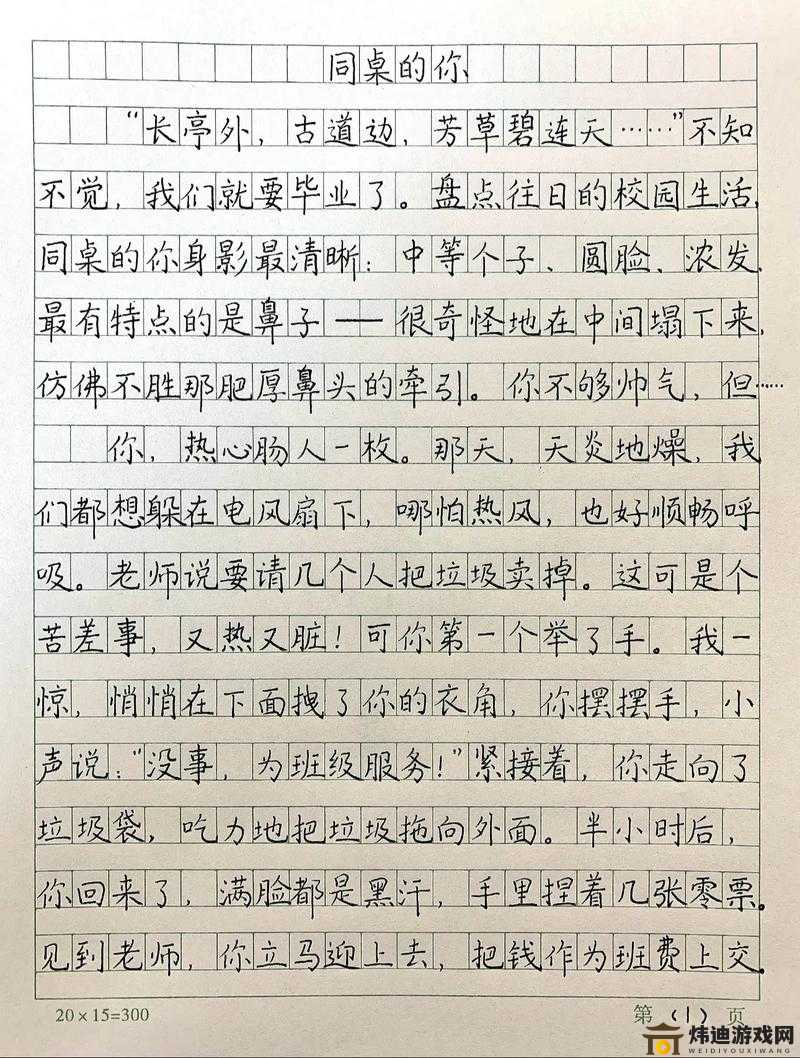 同桌的你
“长亭外，古道边，芳草碧连天……”不知
不觉，我们就要毕业了。盘点往日的校园生活，
同桌的你身影最清晰：中等个子、圆脸、浓发，
最有特点的是鼻子——很奇怪地在中间塌下来，
仿佛不胜那肥厚鼻头的牵引。你不够帅气，但……
你，热心肠人一枚。那天，天炎地燥，我
们都想躲在电风扇下，哪怕热风，也好顺畅呼
吸。老师说要请几个人把垃圾卖掉。这可是个
苦差事，又热又脏！可你第一个举了手。我一
惊，悄悄在下面拽了你的衣角，你摆摆手，小
声说：“没事，为班级服务！”紧接着，你走向了
垃圾袋，吃力地把垃圾拖向外面。半小时后，
你回来了，满脸都是黑汗，手里捏着几张零票。
见到老师，你立马迎上去，把钱作为班费上交。
20×15=300
第（1）页
炜迪游戏网
WEIDIYOUXIWANG